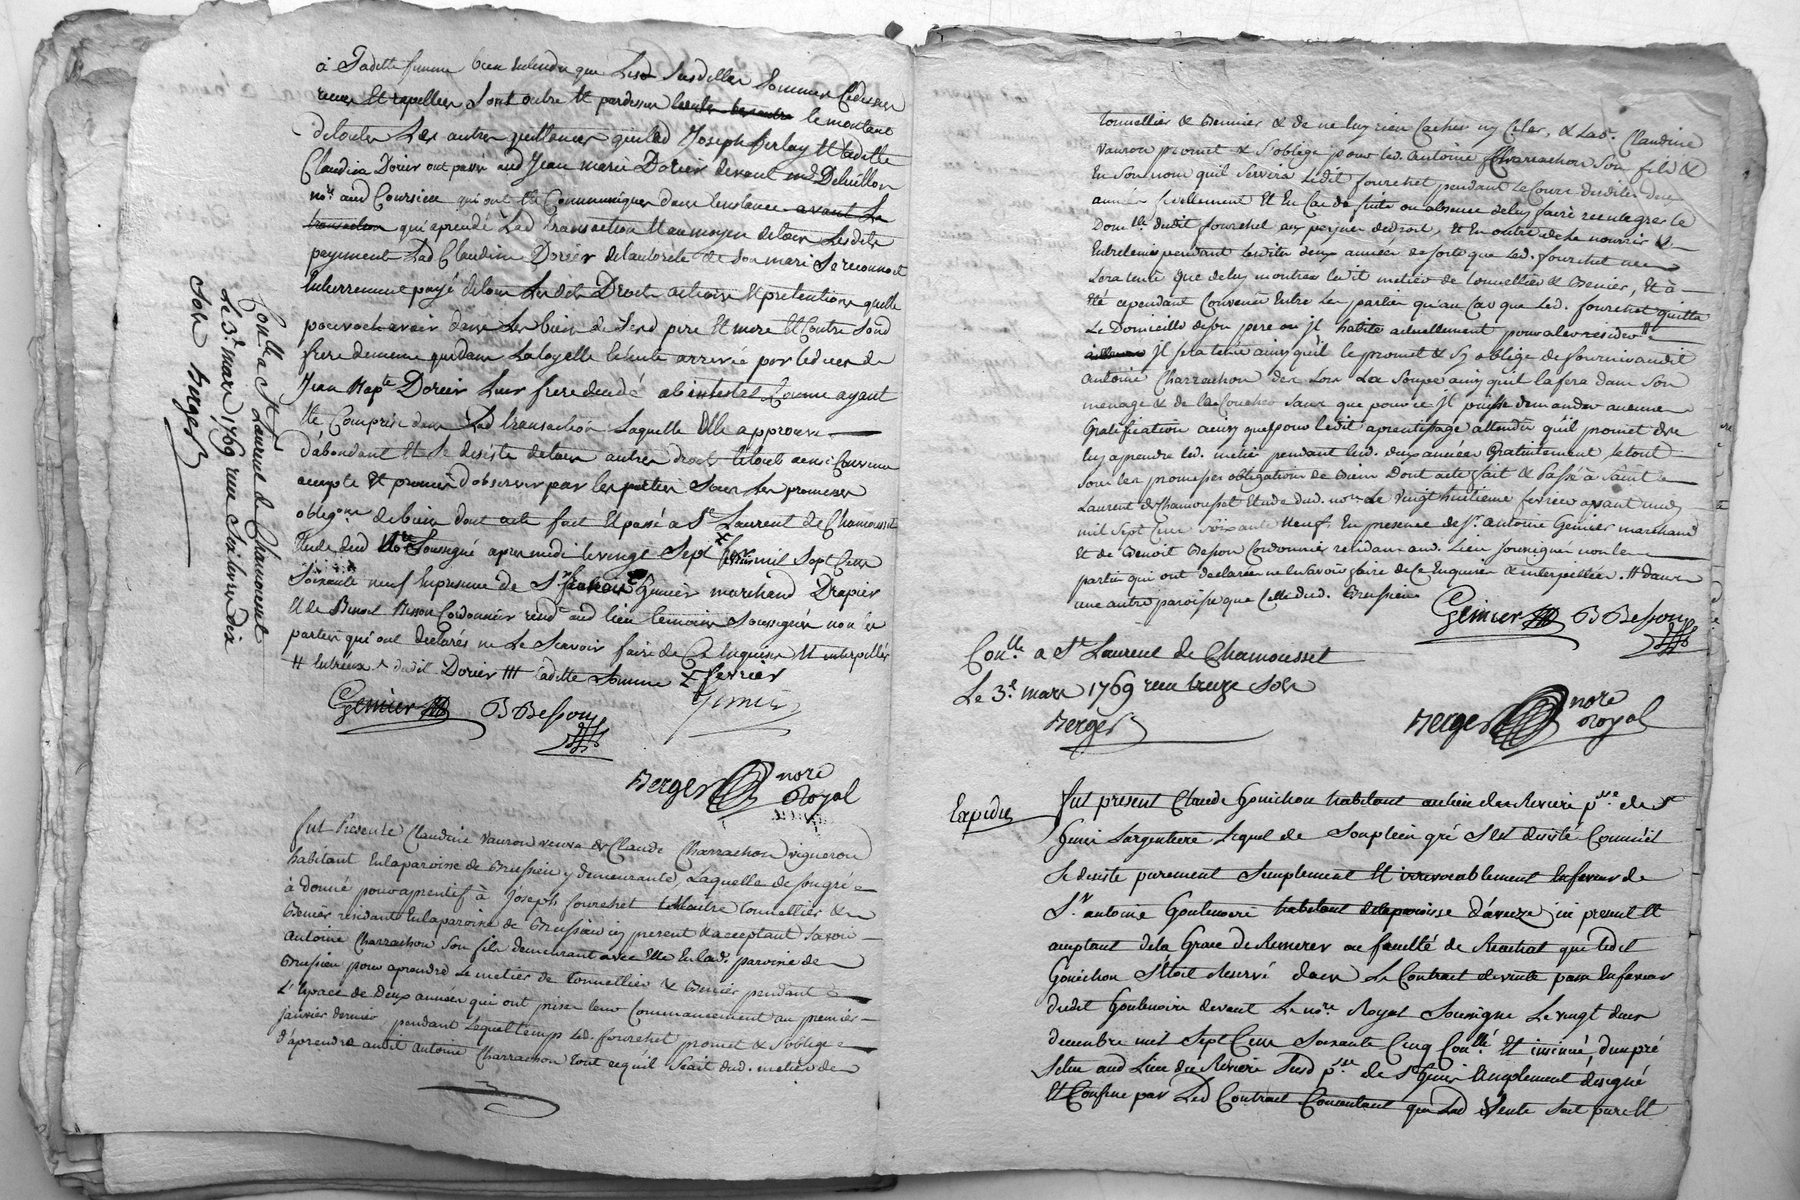 à Ladette somme bien entendu que Lesd Susdites Sommes Cydessus
reçues Et rapellées Sont outre Et pardessus le montant
de toutes Les autres quittances que led Joseph Et Ladette
Claudine Dorier ont passé aud Jean marie Dorier devant
no.re aud Coursieu qui ont été Communiquées dans Linstance
transaction qui a précédé Lad transaction Et au moyen de tous Lesdits
payements Lad Claudine Dorier de Lautorité de Son mari Se reconnoit
Entierrement payé de tous Les dits Droits actions Et prétentions quelle
pouvoit avoir dans Les biens de Sesd pere Et mere Et Contre Sond
frere de meme que dans La loyalle Echute arrivée par le deces de
Jean Bap.te Dorier Leur frere décédé ab intestat Comme ayant
Eté Comprise dans Lad transaction Laquelle Elle approuve
d'abondant Et Se désiste de tous autres droits Le tout ainsi Convenu
accepté Et promis d'observer par Les parties Sous Les promesses
oblig.ons de biens dont acte fait Et passé à S.t Laurent de Chamousset
Etude dud No.re Soussigné apres midi le vingt Sept mil Sept Cent
Soixante neuf En presence de S.r Genier marchand Drapier
Et de Benoit Besson Cordonnier resid.t aud lieu temoins Soussignés non les
parties qui ont declarés ne Le Scavoir faire de Ce Enquises Et interpellés
dudit Dorier Ladette Somme fevrier
Genier B Besson
Berger no.re Royal
Con.llé a S.t Laurent de Chamousset
Le 3.e mars 1769 reçu Six livres dix
Sols Berger
Fut Présente Claudine Vauron veuve de Claude Charrachon vigneron
habitant En la paroisse de Brussieu y demeurante, Laquelle de Son gré
à donné pour aprentif à Joseph fourchet Maitre tonnellier &
Benier residant En la paroisse de Brussieu icy present & acceptant Savoir
Antoine Charrachon Son fils demeurant avec Elle En lad. paroisse de
Brussieu pour aprendre Le metier de tonnellier & Benier pendant
L'Espace de Deux années qui ont prises leur Commancement au premier
janvier dernier pendant Lequel temps led. fourchet promet & S'oblige
d'aprendre audit Antoine Charrachon tout ce qu'il Scait dud. metier de
tonnellier & Bennier & de ne luy rien Cacher ny Celer, & Lad.e Claudine
Vauron promet & S'oblige pour led. Antoine Charrachon Son fils &
En Son nom qu'il Servira Ledit fourchet pendant Le Cours desdites deux
années fidellement Et En Cas de fuite ou absence de luy faire reintegrer le
Dom.lle dudit fourchet aux peines de droit, Et En outre de le nourrir &
Entretenir pendant lesdites deux années de sorte que led. fourchet ne
Sera tenu que de luy montrer ledit metier de tonnellier & Benier, Et à
Eté cependant Convenu Entre Les parties qu'au Cas que led. fourchet quitta
Le Domicille de Son pere ou il habite actuellement pour aller resider
il Sera tenu ainsy qu'il le promet & S'y oblige de fournir audit
Antoine Charrachon des Lors La Soupe ainsy qu'il la fera dans Son
menage & de le Coucher Sans que pour ce il puisse demander aucune
Gratification ainsy que pour ledit aprentissage attendu qu'il promet de
luy aprendre led. metier pendant lesd. deux années Gratuitement le tout
Sous les promesses obligations de Biens Dont acte fait & Passé à Saint
Laurent de Chamousset Etude dud. no.re Le vingt huitieme fevrier avant midy
mil Sept Cent soixante Neuf. En presence de S.r Antoine Genier marchand
Et de Benoit Besson Cordonnier residans aud. Lieu Soussignés non les
parties qui ont declarées ne le Scavoir faire de Ce Enquises & interpellées. dans
une autre paroisse que Celle dud. Brussieu
Genier B Besson
Con.llé a S.t Laurent de Chamousset
Le 3.e mars 1769 reçu treize Sols
Berger
Berger no.re Royal
Expediée
Fut present Claude Gonichon habitant au lieu des Rivieres p.sse de S.t
Genis Largentiere, Lequel de Son plein gré S'est desisté Comme il
Se desiste purement Simplement Et irrevocablement En faveur de
S.r antoine Goulenoire habitant de la paroisse d'aveize ici present Et
acceptant de la Grace de Remerer ou faculté de Rachat que ledit
Gonichon S'étoit Réservé dans Le Contract de vente passé En faveur
dudit Goulenoire devant Le no.re Royal Soussigné Le vingt deux
decembre mil Sept Cent Soixante Cinq Con.llé Et insinué, d'un pré
Situé aud Lieu des Rivieres Susd p.sse de S.t Genis Amplement designé
Et Confiné par Led Contract Consentant que Lad Vente Soit pure Et